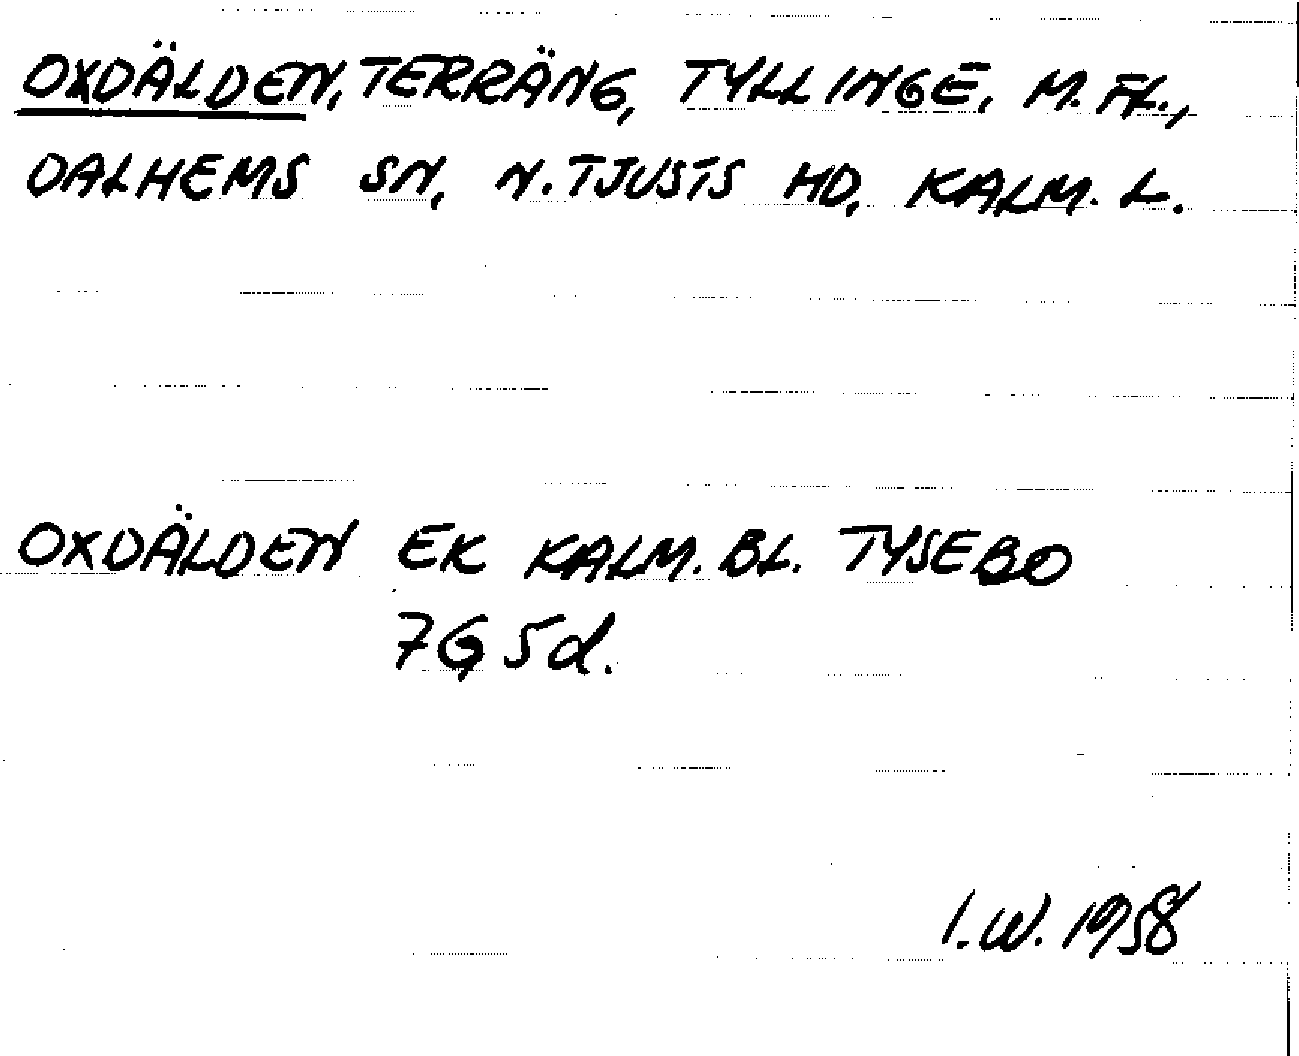 OXDÄLDEN, TERRÄNG, TYLLINGE, M. FL.,
DALHEMS SN, N. TJUSTS HD, KALM. L.
OXDÄLDEN EK KALM. BL. TYSEBO
7G 5d.
I.W. 1958